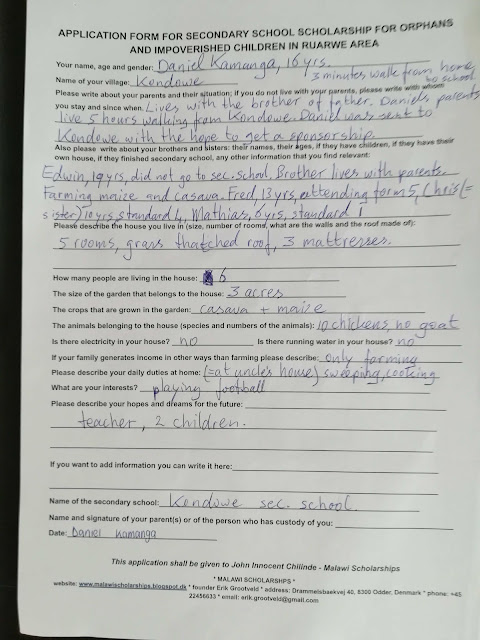 APPLICATION FORM FOR SECONDARY SCHOOL SCHOLARSHIP FOR ORPHANS
AND IMPOVERISHED CHILDREN IN RUARWE AREA
Your name, age and gender: Daniel Kamanga, 16 yrs.
Name of your village: Kondowe 3 minutes walk from home no school
Please write about your parents and their situation; if you do not live with your parents, please write with whom
you stay and since when. Lives with the brother of father. Daniels parents
live 5 hours walking from Kondowe. Daniel was sent to
Kondowe with the hope to get a sponsorship.
Also please write about your brothers and sisters: their names, their ages, if they have children, if they have their
own house, if they finished secondary school, any other information that you find relevant:
Edwin, 19 yrs, did not go to sec. school. Brother lives with parents.
Farming maize and casava. Fred 13 yrs, attending form 5, Chris (=
sister) 10 yrs standard 4, Mathias, 6 yrs, standard 1
Please describe the house you live in (size, number of rooms, what are the walls and the roof made of):
5 rooms, grass thatched roof, 3 mattresses.
How many people are living in the house: 6
The size of the garden that belongs to the house: 3 acres
The crops that are grown in the garden: casava + maize
The animals belonging to the house (species and numbers of the animals): 10 chickens, no goat
Is there electricity in your house? no Is there running water in your house? no
If your family generates income in other ways than farming please describe: only farming
Please describe your daily duties at home: (=at uncle's home) sweeping, cooking
What are your interests? playing football
Please describe your hopes and dreams for the future:
teacher, 2 children.
If you want to add information you can write it here:
Name of the secondary school: Kondowe sec. school
Name and signature of your parent(s) or of the person who has custody of you:
Date: Daniel kamanga
This application shall be given to John Innocent Chilinde - Malawi Scholarships
* MALAWI SCHOLARSHIPS *
website: www.malawischolarships.blogspot.dk * founder Erik Grootveld * address: Drammelsbaekvej 40, 8300 Odder, Denmark * phone: +45
22456633 * email: erik.grootveld@gmail.com